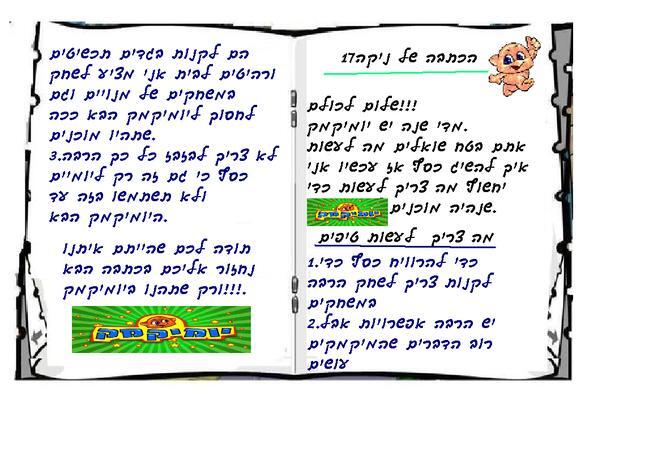 הכתבה של ניקה17
שלום לכולם!!!
מדי שנה יש יומיקמק.
אתם בטח שואלים מה לעשות
איך להשיג כסף אז עכשיו אני
יחשוף מה צריך לעשות כדי
שנהיה מוכנים.
יומיקמק
מה צריך לעשות טיפים
1.כדי להרוויח כסף כדי
לקנות צריך לשחק הרבה
במשחקים
2.יש הרבה אפשרויות אבל
רוב הדברים שהמיקמקים
עושים
הם לקנות בגדים תכשיטים
ורהיטים לבית אני מציע לשחק
במשחקים של מנויים וגם
לחסוך ליומיקמק הבא ככה
שתהיו מוכנים.
3.לא צריך לבזבז כל כך הרבה
כסף כי גם זה רק ליומיים
ולא תשתמשו בזה עד
היומיקמק הבא.
תודה לכם שהייתם איתנו
נחזור אליכם בכתבה הבא
ורק שתהנו ביומיקמק!!!.
יומיקמק